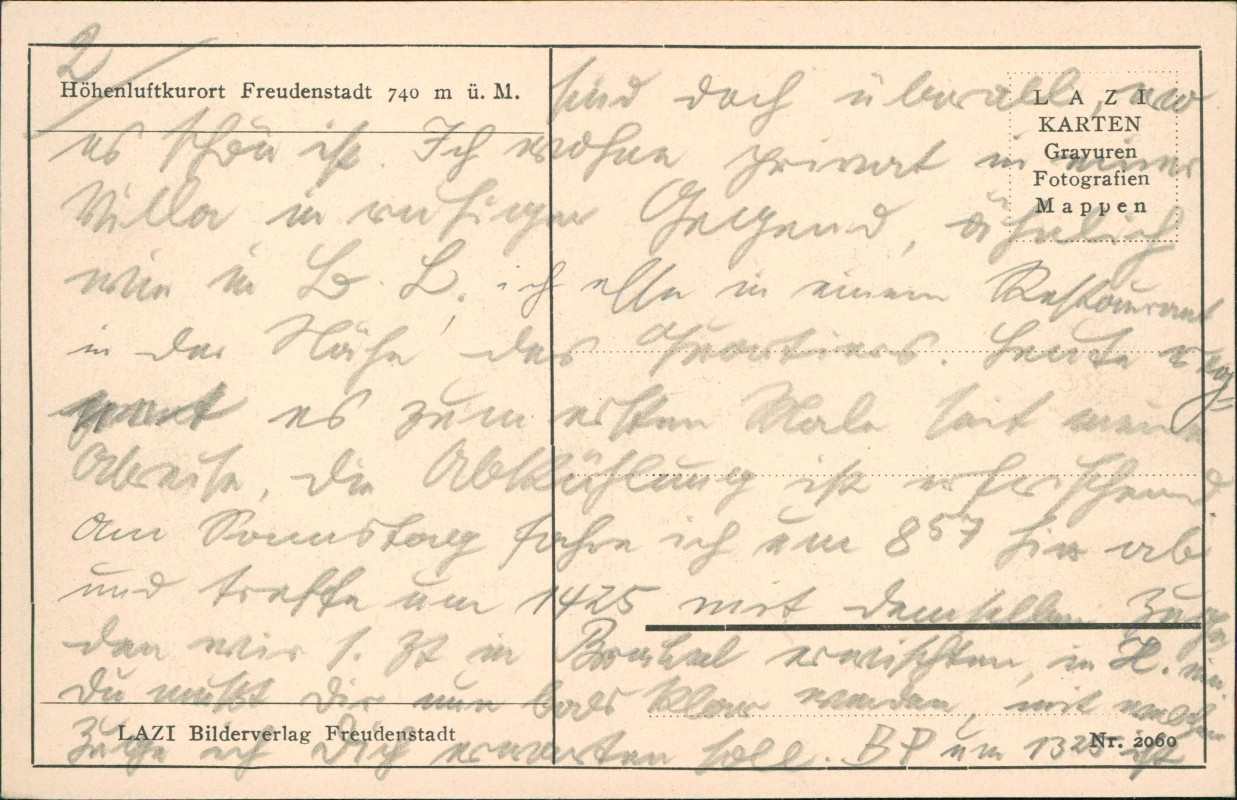 2/
Höhenluftkurort Freudenstadt 740 m ü. M.
LAZI
KARTEN
Gravuren
Fotografien
Mappen
sind doch überall, wo
es schön ist. Ich wohne privat in einer
Villa in ruhiger Gegend, ähnlich
wie in B. L., ich esse in einem Restaurant
in der Nähe des Quartiers. Heute reg=
net es zum ersten Male seit meiner
Abreise, die Abkühlung ist erfrischend.
Am Sonnstag fahre ich um 857 hier ab
und treffe um 1425 mit demselben Zuge
den wir s. Zt in erwischten, in H. ein.
Du mußt Dir nun bald klar werden, mit welchem
Zuge ich Dich erwarten soll. BP um 1325 ist
LAZI Bilderverlag Freudenstadt
Nr. 2060